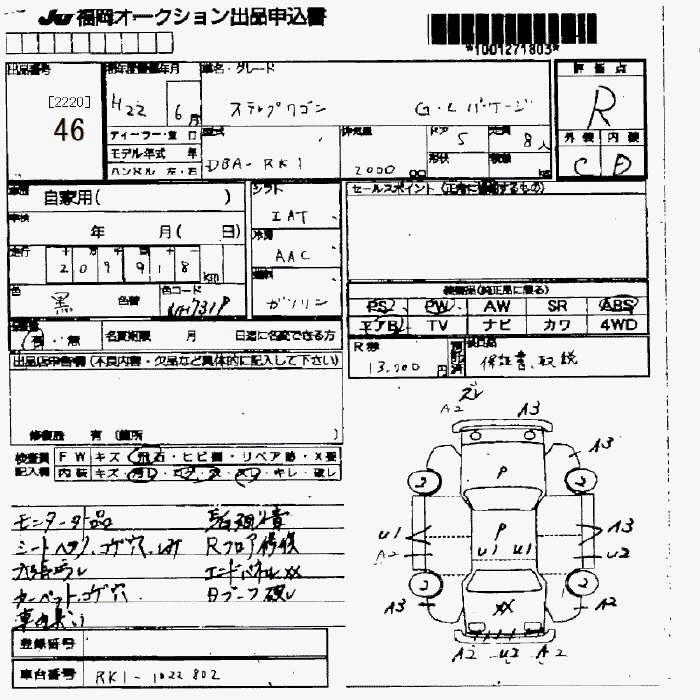 JU 福岡オークション出品申込書
*1001271803*
出品番号
[2220]
46
初年度登録年月
H22 6月
車名・グレード
ステップワゴン G・Lパッケージ
評価点
R
外装 内装
C D
ディーラー・並行
モデル年式 年
ハンドル 左・右
型式
DBA-RK1
排気量
2000 cc
ドア 5
形状
定員 8人
積載 kg
車歴
自家用( )
車検
年 月( 日)
走行
十 万 千 百 十 一
209918 km
色
黒
色替
色コード
シフト
IAT
冷房
AAC
燃料
ガソリン
セールスポイント(正確に記載するもの)
装備品(純正品に限る)
PS PW AW SR ABS
エアB TV ナビ カワ 4WD
有・無 名変期限 月 日迄に名変できる方
R券
13,700円
保証書、取説
出品店申告欄(不良内容・欠品など具体的に記入して下さい)
修復歴 有(箇所 )
検査員
記入欄
FW キズ・飛石・ヒビ割・リペア跡・X要
内装 キズ・汚レ・コゲ・穴・スレ・キレ・破レ
モニター欠品
シートヘタリ、コゲ穴、
カーペットコゲ穴
Rフロア修復
エンドパネルXX
登録番号
車台番号 RK1-1022802
ズレ
A2 A3
A3
P
2 2
P
U1 A3
A2 U1 U1 U2
2 2
A3 XX A2
A2 U3 A2